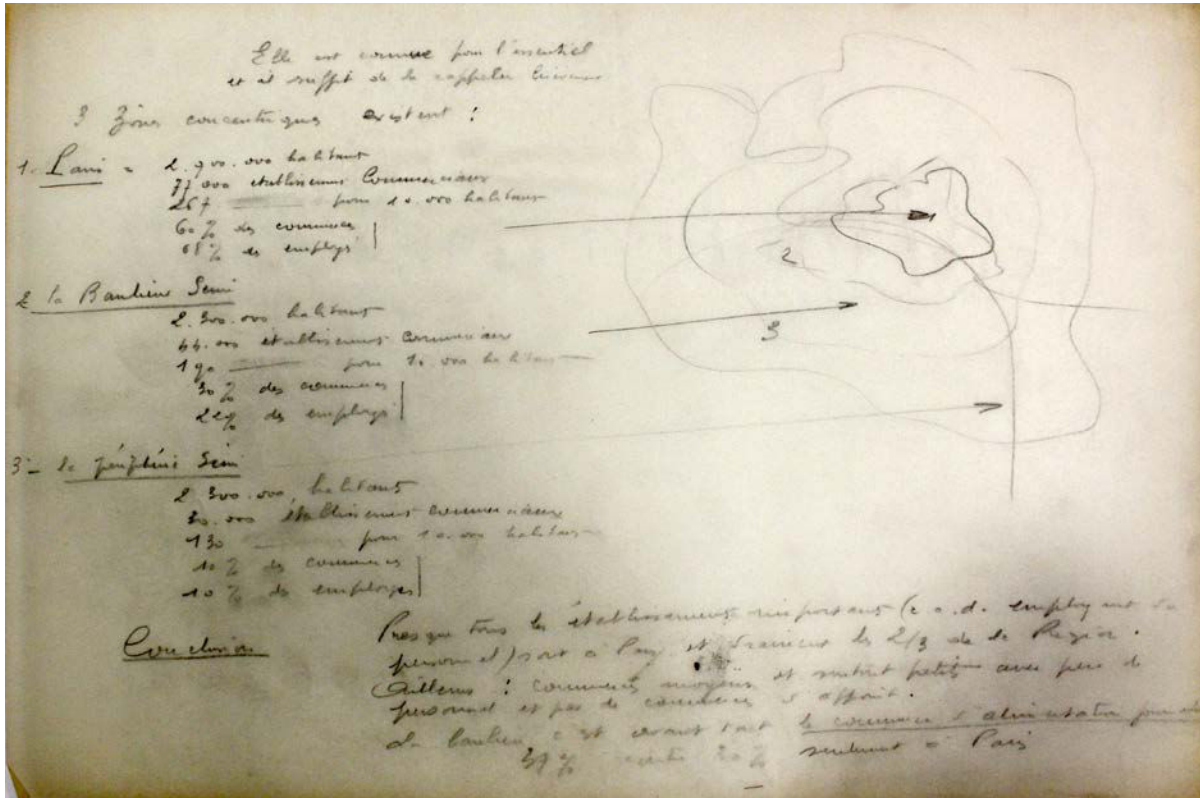 Elle est connue pour l'essentiel
et il suffit de la rappeler
3 Zones concentriques existent :
1. Paris = 2.900.000 habitants
77.000 établissements Commerciaux
267 pour 10.000 habitants
60 % des commerces
68 % des employés
2 la Banlieue Seine
2.300.000 habitants
44.000 établissements Commerciaux
190 pour 10.000 habitants
30 % des commerces
22 % des employés
2
3
3 - la périphérie
2.300.000 habitants
30.000 établissements commerciaux
130 pour 10.000 habitants
10 % des commerces
10 % des employés
Conclusion
Presque tous les établissements importants (c.a.d. employant du
personnel) sont à Paris et drainent les 2/3 de la Région.
Ailleurs : commerces moyens et surtout petits avec peu de
personnel et pas de commerces d'
la banlieue c'est avant tout le commerce d'alimentation
37 % contre 20 % seulement à Paris